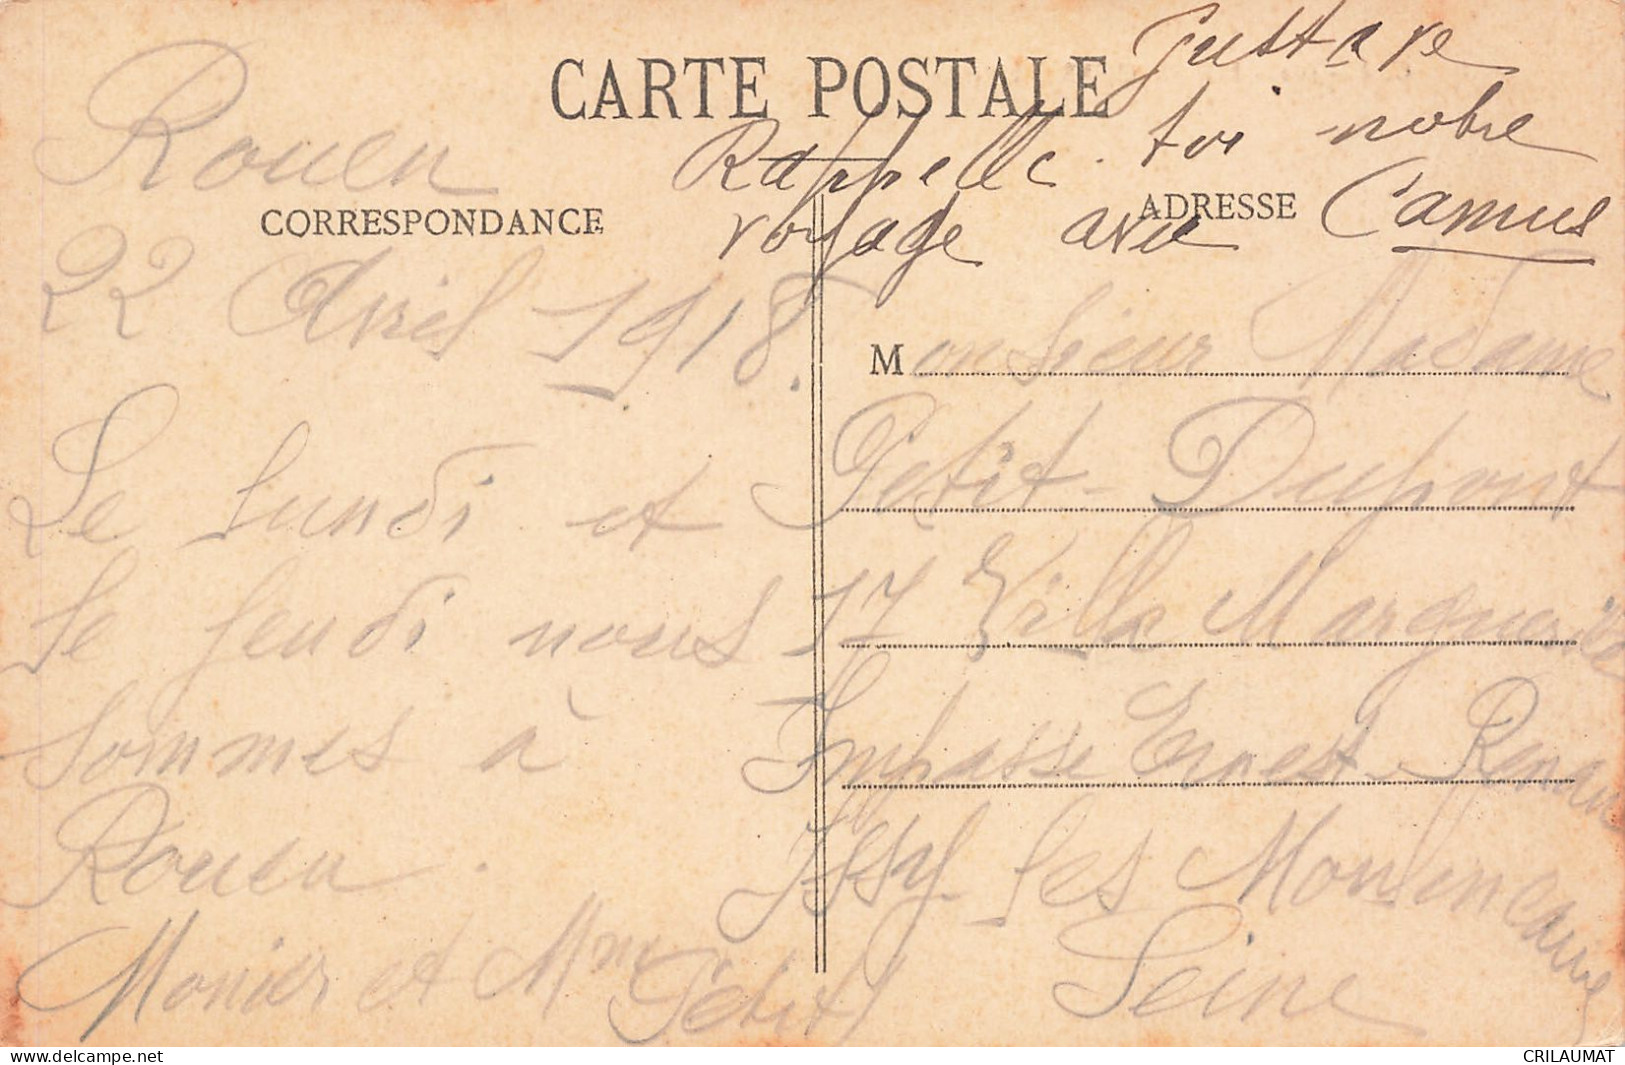 CARTE POSTALE
Gustave
Rappelle toi notre
voyage avec Camus
CORRESPONDANCE
ADRESSE
Rouen
22 Avril 1918.
Le lundi et
le jeudi nous
sommes à
Rouen.
Monier et Mme Petit
Monsieur Madame
Petit-Dupont
17 Villa Marguerite
Impasse Ernest-Renan
Issy-les Moulineaux
Seine
CRILAUMAT